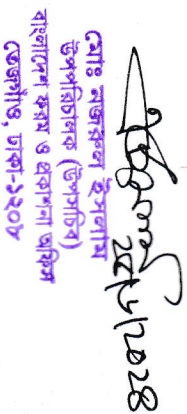 ২৫/৭/২০২৪
মোঃ নজরুল ইসলাম
উপপরিচালক (উপসচিব)
বাংলাদেশ ফরম ও প্রকাশনা অফিস
তেজগাঁও, ঢাকা-১২০৮